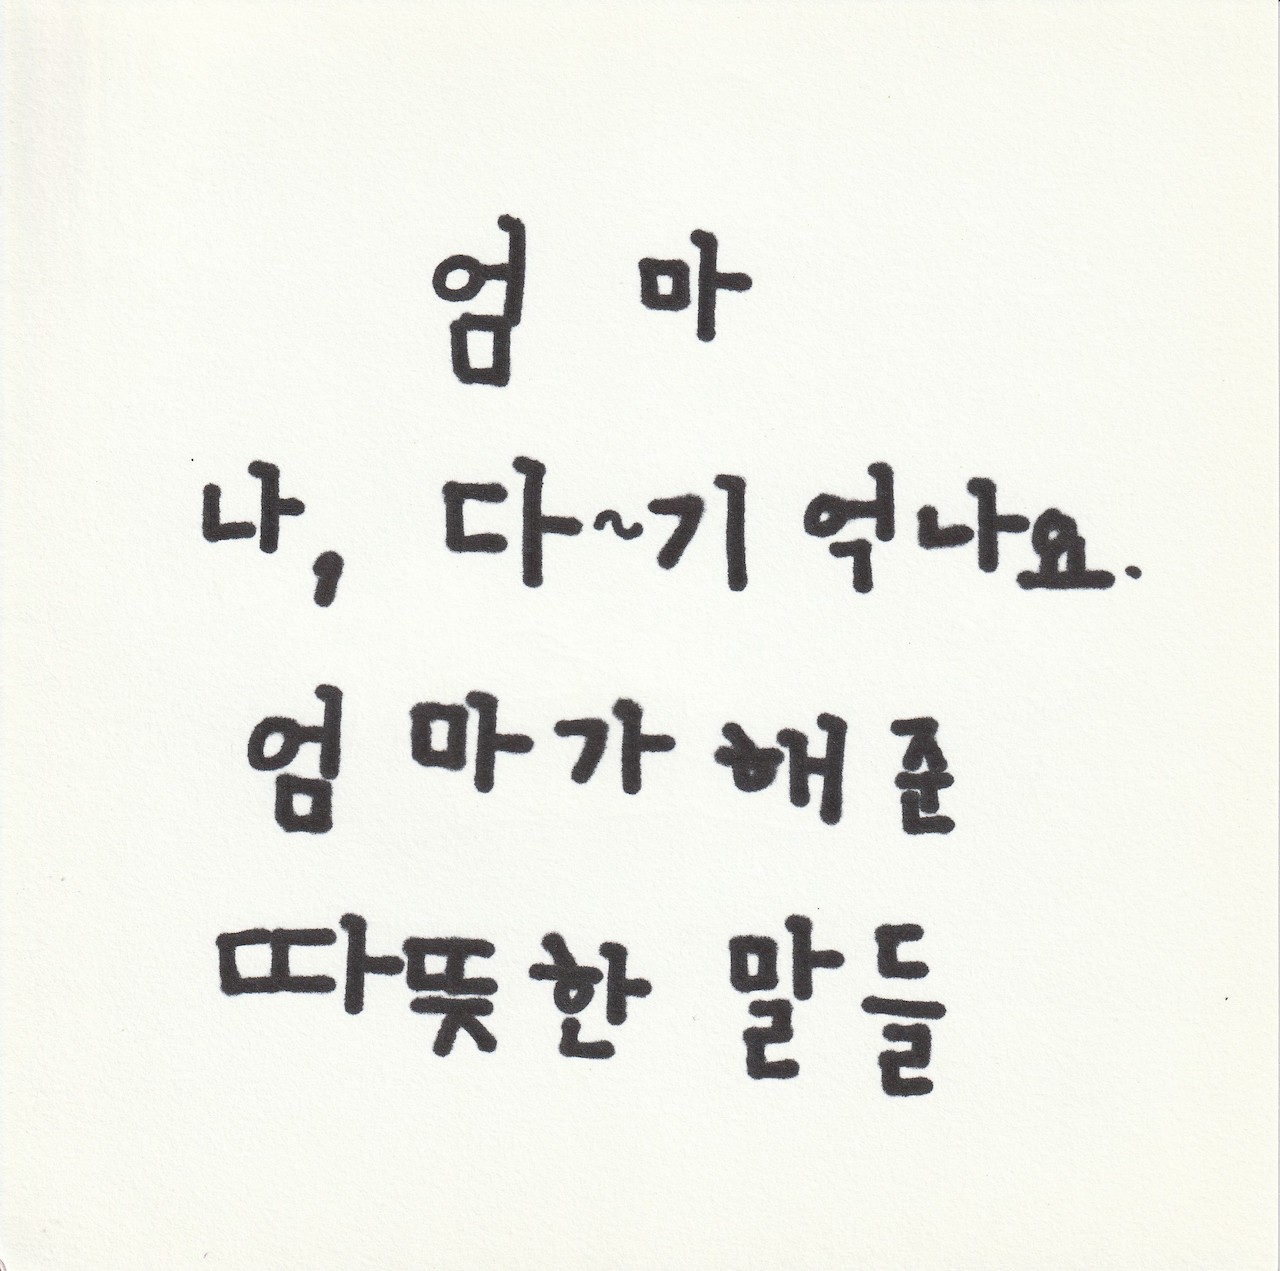 엄마
나, 다~기억나요.
엄마가 해준
따뜻한 말들